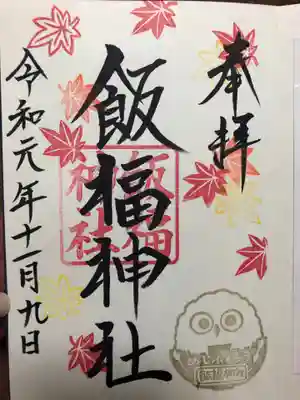 奉拝
飯福神社
飯福
神社
令和元年十一月九日